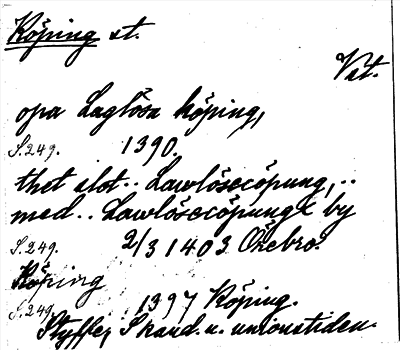 Köping st.
Vst.
opa Laglösa köping,
S.249. 1390.
thet slot.. Lawlösecöpung,..
med.. Lawlösecöpungx by
S.249. 2/3 1403 Örebro.
Köping
S.249. 1397 Köping.
Styffe, Skand. u. unionstiden.